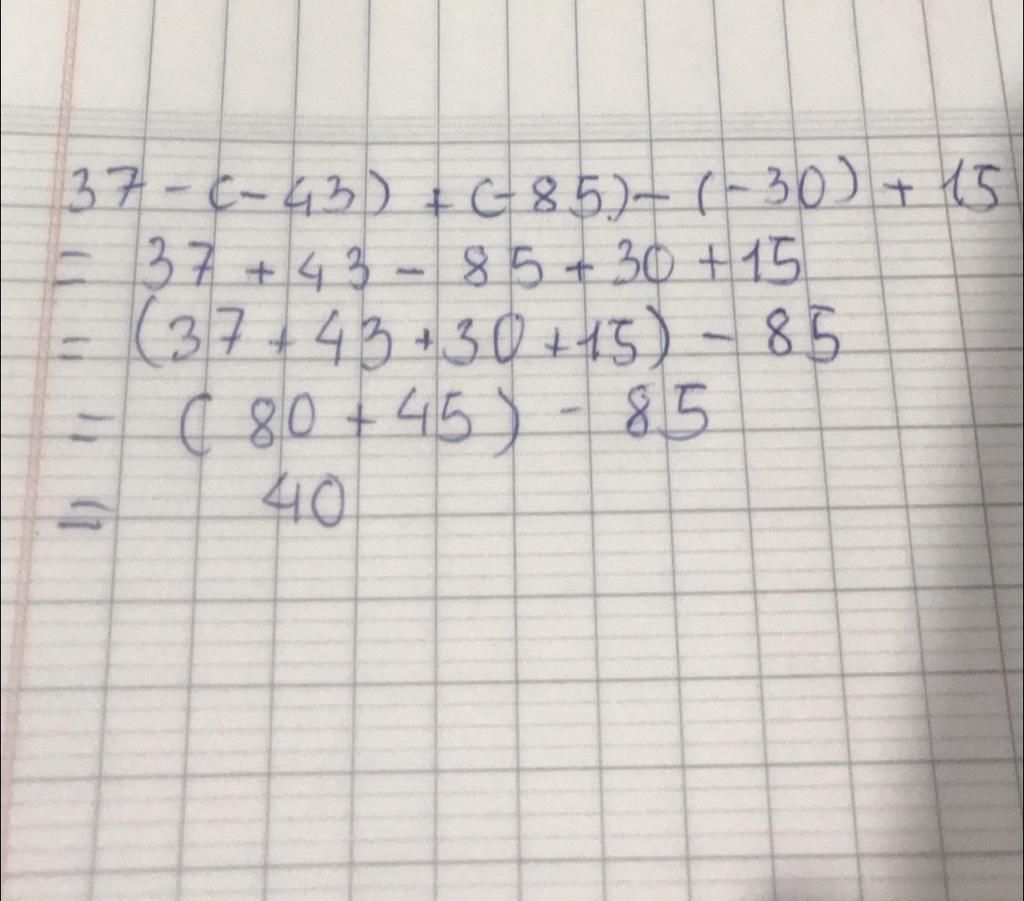 37 - (-43) + (-85) - (-30) + 15
= 37 + 43 - 85 + 30 + 15
= (37 + 43 + 30 + 15) - 85
= (80 + 45) - 85
= 40